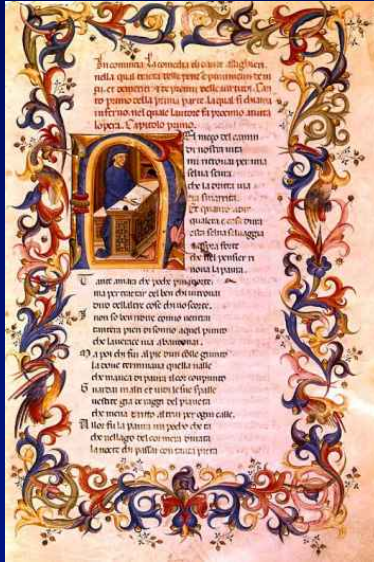 Incomincia la comedia di dante alleghieri
nella qual tracta delle pene
et demeriti et de premii delle virtù. Can
to primo della prima parte la qual si chiama
inferno. nel quale lautore fa prohemio a tucta
lopera. Capitolo primo.
Nel mezo del camin
di nostra vita
mi ritrovai per una
selva scura
che la diritta via
era smarrita.
Et quanto a dir
qual era e cosa dura
esta selva selvaggia
aspra e forte
che nel pensier ri
nova la paura.
Tante amara che pocho piu morte
ma per tractar del ben chi vi trovai
diro dellaltre cose chi vo scorte.
I non so ben ridire comio ventrai
tantera pien di sonno a quel punto
che la verace via abandonai.
Ma poi chi fui al pie dun colle giunto
la dove terminava quella valle
che mavea di paura il cor compunto
Guardai in alti et vidi le sue spalle
vestite gia de raggi del pianeta
che mena dritto altrui per ogni calle.
Allor fu la paura un pocho cheta
che nel lago del cor mera durata
la nocte chi passai con tanta pieta